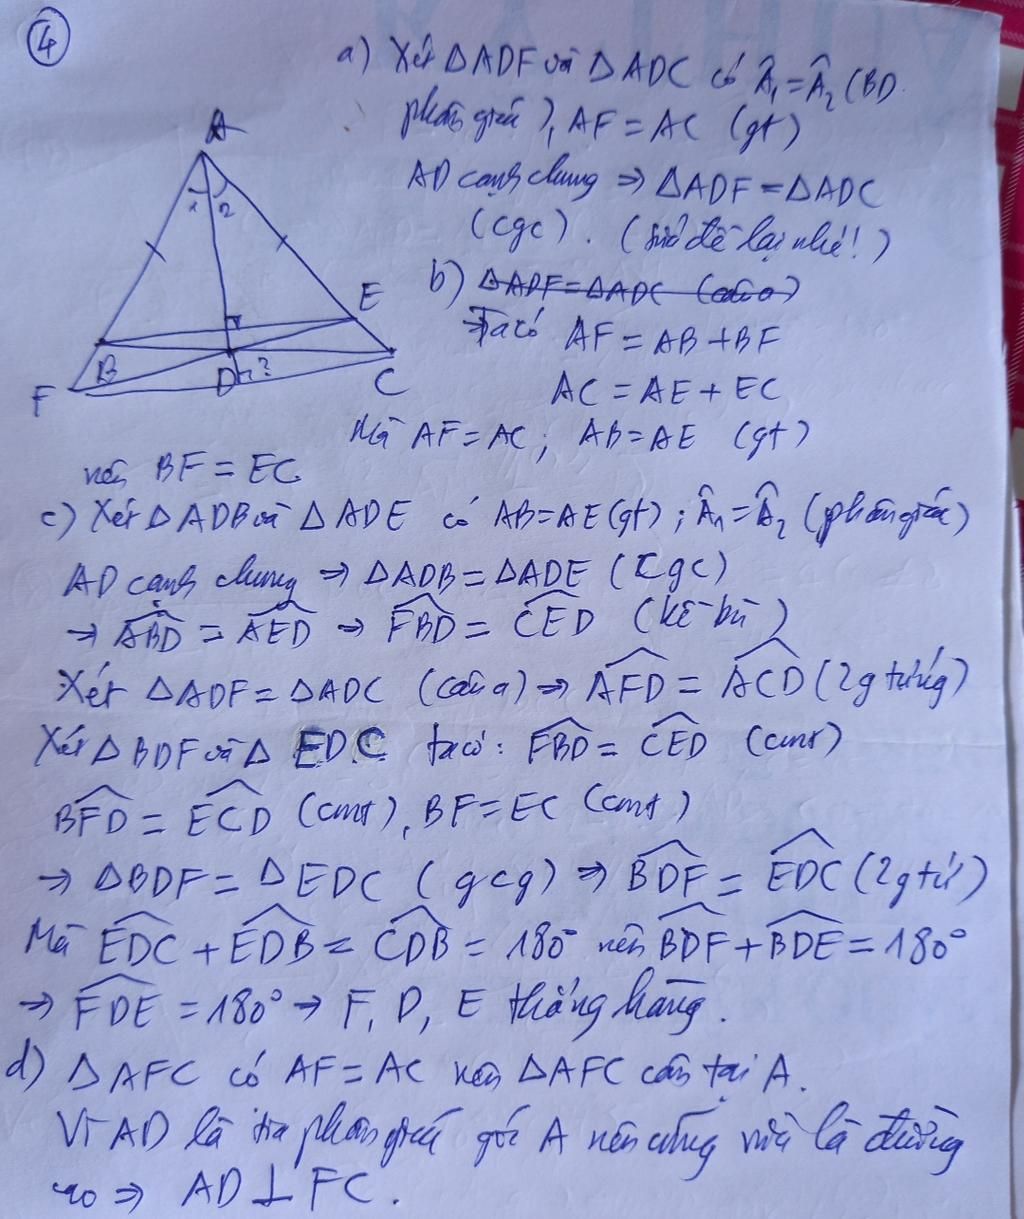 4
a) Xét ΔADF và ΔADC có Â₁=Â₂ (BD
phân giác), AF = AC (gt)
AD cạnh chung ⇒ ΔADF = ΔADC
(cgc). (sửa đề lại nhé!)
b) ΔADF=ΔADC (câu a)
Ta có AF = AB + BF
AC = AE + EC
Mà AF = AC; AB = AE (gt)
nên BF = EC
c) Xét ΔADB và ΔADE có AB=AE (gt); Â₁=Â₂ (phân giác)
AD cạnh chung ⇒ ΔADB = ΔADE (cgc)
⇒ ABD = AED ⇒ FBD = CED (kề bù)
Xét ΔADF = ΔADC (câu a) ⇒ AFD = ACD (2g tứng)
Xét ΔBDF và Δ EDC ta có: FBD = CED (cmt)
BFD = ECD (cmt), BF = EC (cmt)
⇒ ΔBDF = ΔEDC (gcg) ⇒ BDF = EDC (2g tứ)
Mà EDC + EDB = CDB = 180° nên BDF + BDE = 180°
⇒ FDE = 180° ⇒ F, D, E thẳng hàng.
d) ΔAFC có AF = AC nên ΔAFC cân tại A.
Vì AD là tia phân giác góc A nên cũng là đường
cao ⇒ AD ⊥ FC.
A
1 2
E
B
F
D
2
C